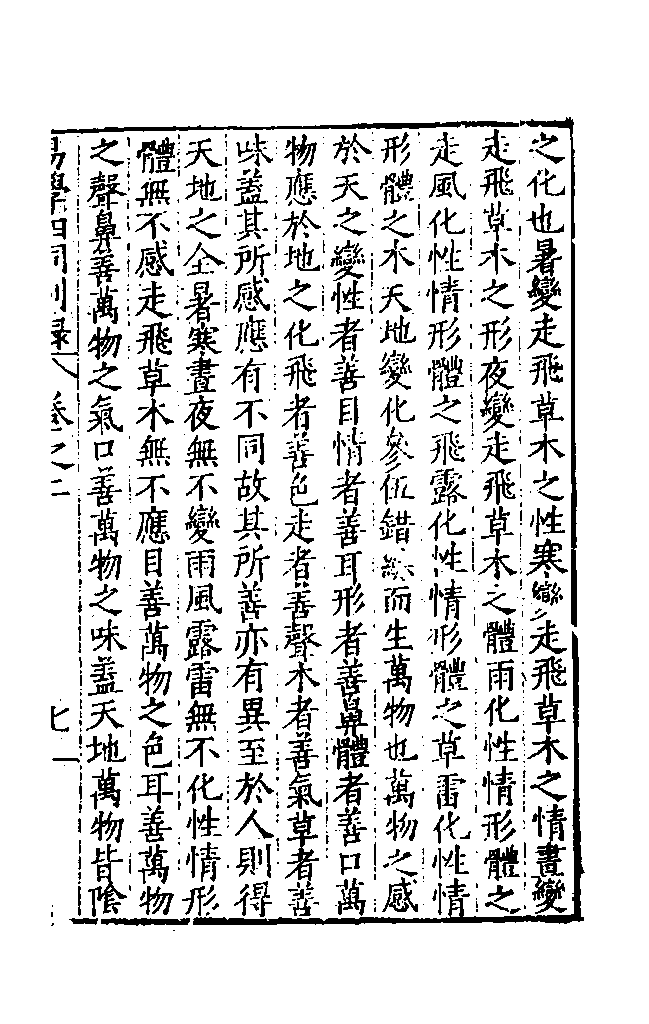 之化也暑變走飛草木之性寒變走飛草木之情晝變
走飛草木之形夜變走飛草木之體雨化性情形體之
走風化性情形體之飛露化性情形體之草雷化性情
形體之木天地變化參伍錯綜而生萬物也萬物之感
於天之變性者善目情者善耳形者善鼻體者善口萬
物應於地之化飛者善色走者善聲木者善氣草者善
味葢其所感應有不同故其所善亦有異至於人則得
天地之全暑寒晝夜無不變雨風露雷無不化性情形
體無不感走飛草木無不應目善萬物之色耳善萬物
之聲鼻善萬物之氣口善萬物之味葢天地萬物皆陰
易學四同別錄 卷之二 七